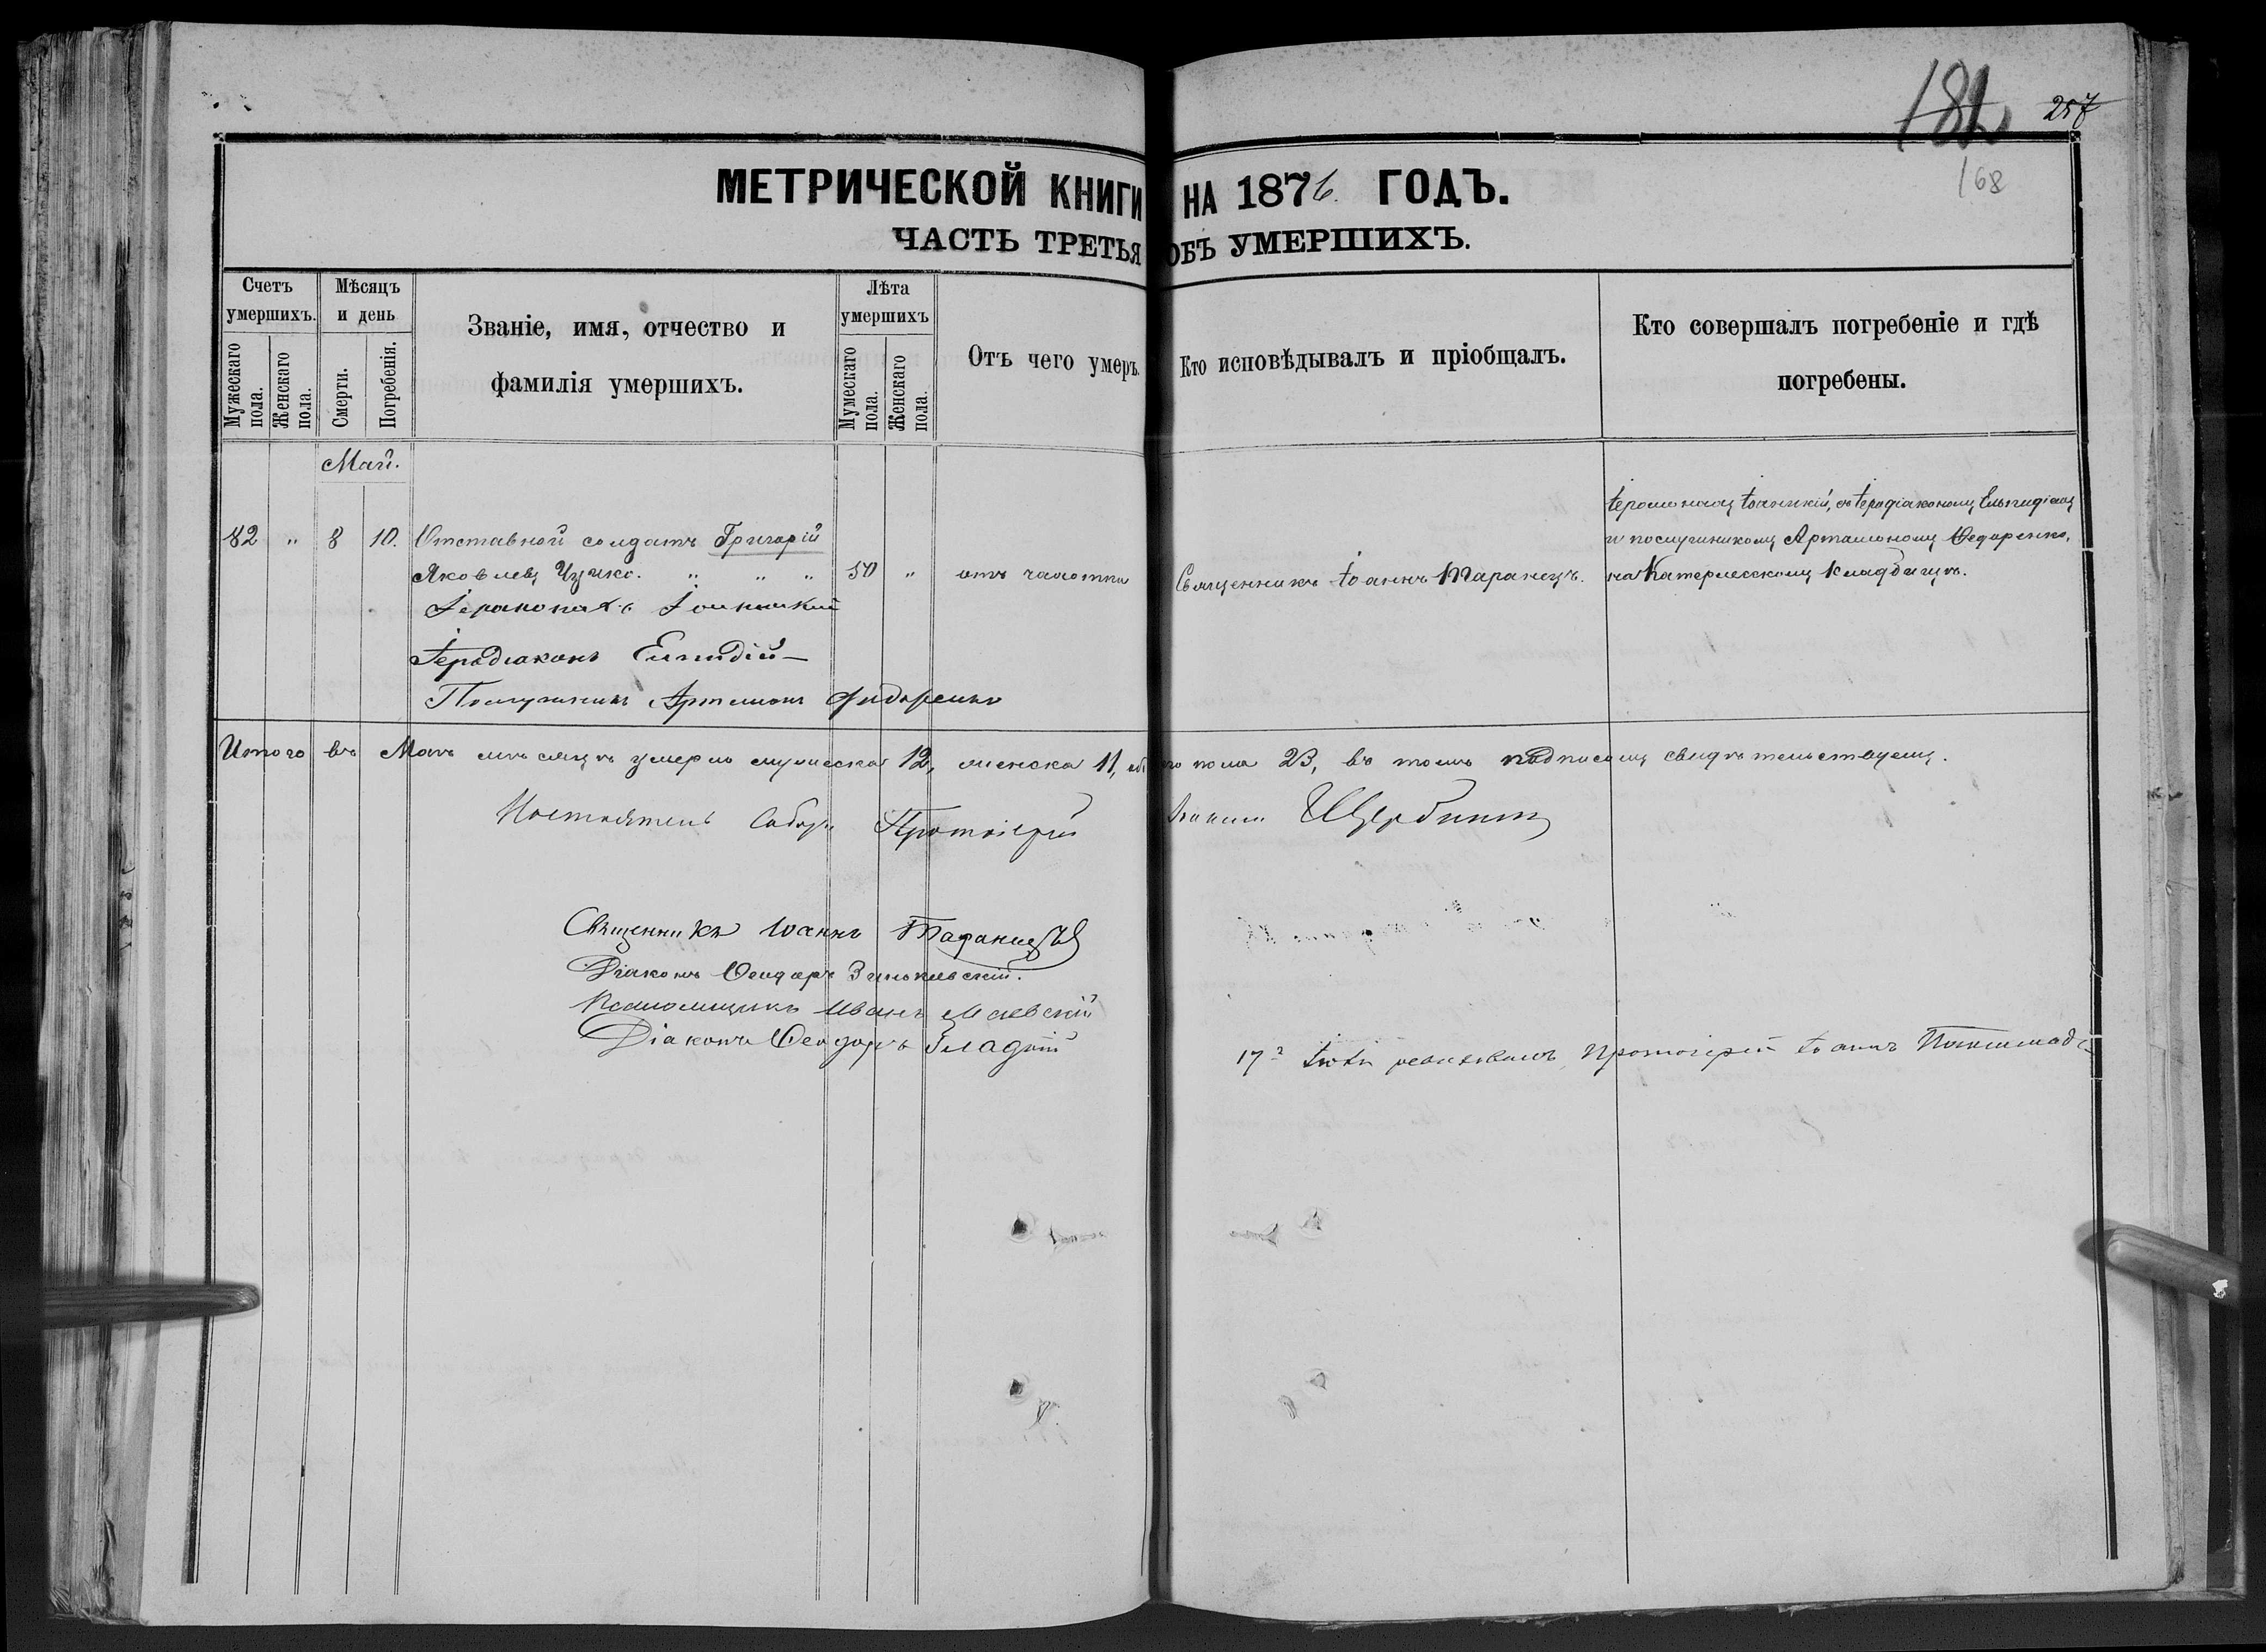 257
181
168
МЕТРИЧЕСКОЙ КНИГИ НА 1876 ГОДЪ.
ЧАСТЬ ТРЕТЬЯ ОБЪ УМЕРШИХЪ.
Счетъ умершихъ.
Мужескаго пола.
Женскаго пола.
Мѣсяцъ и день
Смерти.
Погребенія.
Званіе, имя, отчество и
фамилія умершихъ.
Лѣта умершихъ
Мужескаго пола.
Женскаго пола.
Отъ чего умеръ.
Кто исповѣдывалъ и пріобщалъ.
Кто совершалъ погребеніе и гдѣ
погребены.
Май.
82 " 8 10. Отставной солдатъ Григорій
Яковлевъ " " " 50 " отъ чахотки
Священникъ Іоаннъ Таранецъ.
Іеромонахъ Іоанникій, съ Іеродіакономъ Елпидіемъ
и послушникомъ Артамономъ Федоренко,
на Катерлесскомъ кладбищѣ.
Іеромонахъ Іоанникій
Іеродіаконъ Елпидій
Послушникъ Артамонъ Федоренко
Итого въ Маѣ мѣсяцѣ умерло мужеска 12, женска 11, обоего пола 23, въ томъ подписомъ свидѣтельствуемъ.
Настоятель Собора Протоіерей Щербина
Священникъ Іоаннъ Таранецъ
Діаконъ Ѳеодоръ Зиньковскій.
Псаломщикъ Иванъ Маевскій
Діаконъ Ѳеодоръ Гладкій
17 Протоіерей Іоаннъ